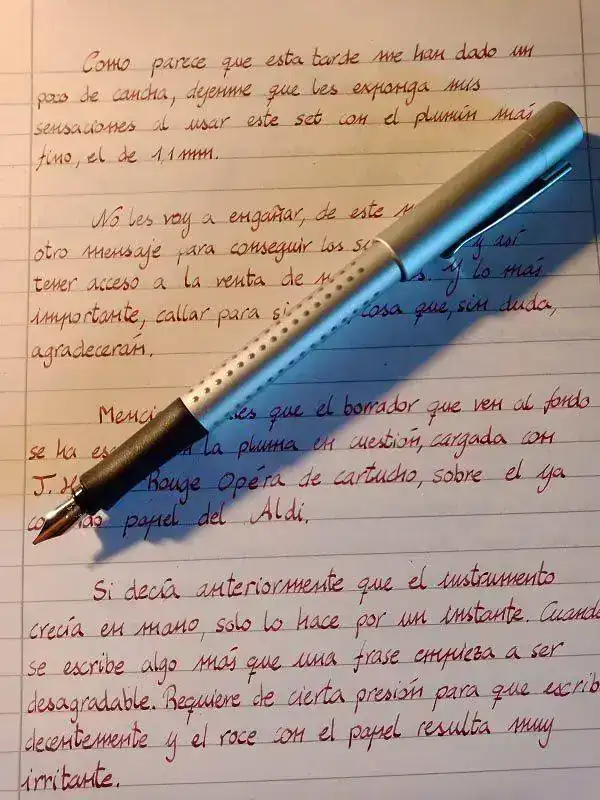 Como parece que esta tarde me han dado un
poco de cancha, déjenme que les exponga mis
sensaciones al usar este set con el plumín más
fino, el de 1,1 mm.
No les voy a engañar, de este
otro mensaje para conseguir los y así
tener acceso a la venta de Y lo más
importante, callar para cosa que, sin duda,
agradecerán.
que el borrador que ven al fondo
se ha la pluma en cuestión, cargada con
J. Rouge Opéra de cartucho, sobre el ya
papel del Aldi.
Si decía anteriormente que el instrumento
crecía en mano, solo lo hace por un instante. Cuando
se escribe algo más que una frase empieza a ser
desagradable. Requiere de cierta presión para que escrib
decentemente y el roce con el papel resulta muy
irritante.